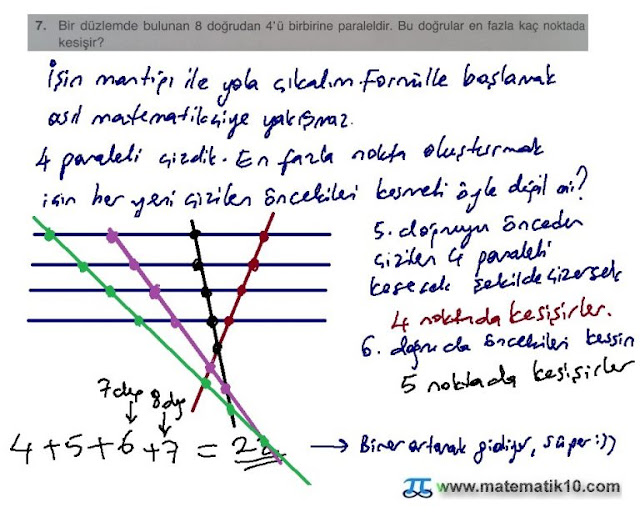 7. Bir düzlemde bulunan 8 doğrudan 4'ü birbirine paraleldir. Bu doğrular en fazla kaç noktada
kesişir?
İşin mantığı ile yola çıkalım. Formülle başlamak
asıl matematikçiye yakışmaz.
4 paraleli çizdik. En fazla nokta oluşturmak
için her yeni çizilen öncekileri kesmeli öyle değil mi?
5. doğruyu önceden
çizilen 4 paraleli
kesecek şekilde çizersek
4 noktada kesişirler.
6. doğru da öncekileri kessin
5 noktada kesişirler
7.dğr 8.dğ
4+5+6+7 = 22 → Birer artarak gidiyor, süper :))
www.matematik10.com